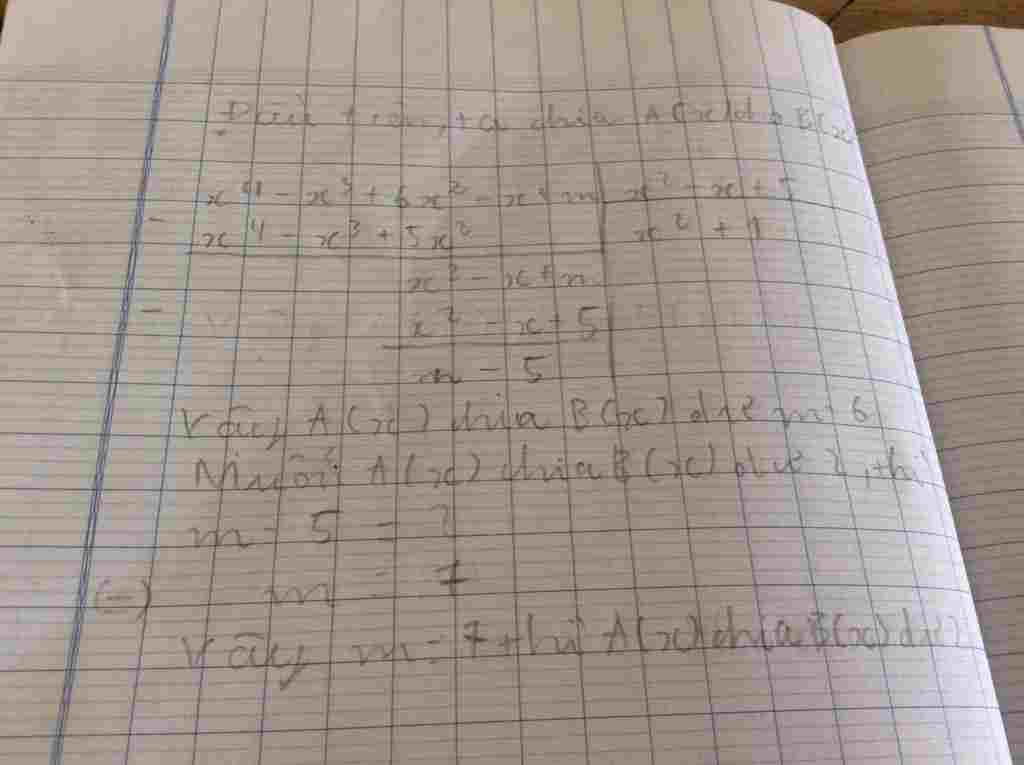 Đầu tiên, ta chia A(x) cho B(x)
x⁴ - x³ + 6x² - x + m | x² - x + 5
- x⁴ - x³ + 5x² | x² + 1
x² - x + m
- x² - x + 5
m - 5
Vậy A(x) chia B(x) dư m - 5
Muốn A(x) chia B(x) dư 2, thì
m - 5 = 2
(=) m = 7
Vậy m = 7 thì A(x) chia B(x) dư 2